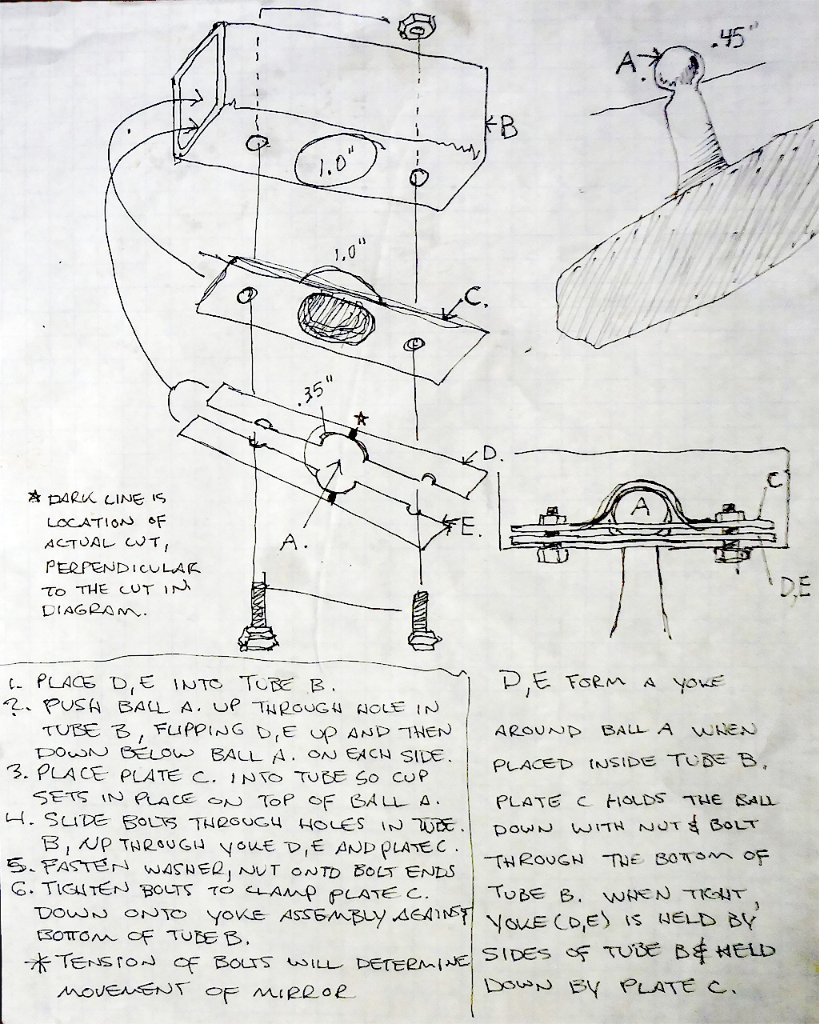 .45"
A.
B
1.0"
1.0"
C.
.35"
*
D.
E.
A.
C
A
D,E
* DARK LINE IS
LOCATION OF
ACTUAL CUT,
PERPENDICULAR
TO THE CUT IN
DIAGRAM.
1. PLACE D,E INTO TUBE B.
2. PUSH BALL A. UP THROUGH HOLE IN
TUBE B, FLIPPING D,E UP AND THEN
DOWN BELOW BALL A. ON EACH SIDE.
3. PLACE PLATE C. INTO TUBE SO CUP
SETS IN PLACE ON TOP OF BALL A.
4. SLIDE BOLTS THROUGH HOLES IN TUBE.
B, UP THROUGH YOKE D,E AND PLATE C.
5. FASTEN WASHER, NUT ONTO BOLT ENDS
6. TIGHTEN BOLTS TO CLAMP PLATE C.
DOWN ONTO YOKE ASSEMBLY AGAINST
BOTTOM OF TUBE B.
* TENSION OF BOLTS WILL DETERMINE
MOVEMENT OF MIRROR
D,E FORM A YOKE
AROUND BALL A WHEN
PLACED INSIDE TUBE B.
PLATE C HOLDS THE BALL
DOWN WITH NUT & BOLT
THROUGH THE BOTTOM OF
TUBE B. WHEN TIGHT,
YOKE (D,E) IS HELD BY
SIDES OF TUBE B & HELD
DOWN BY PLATE C.